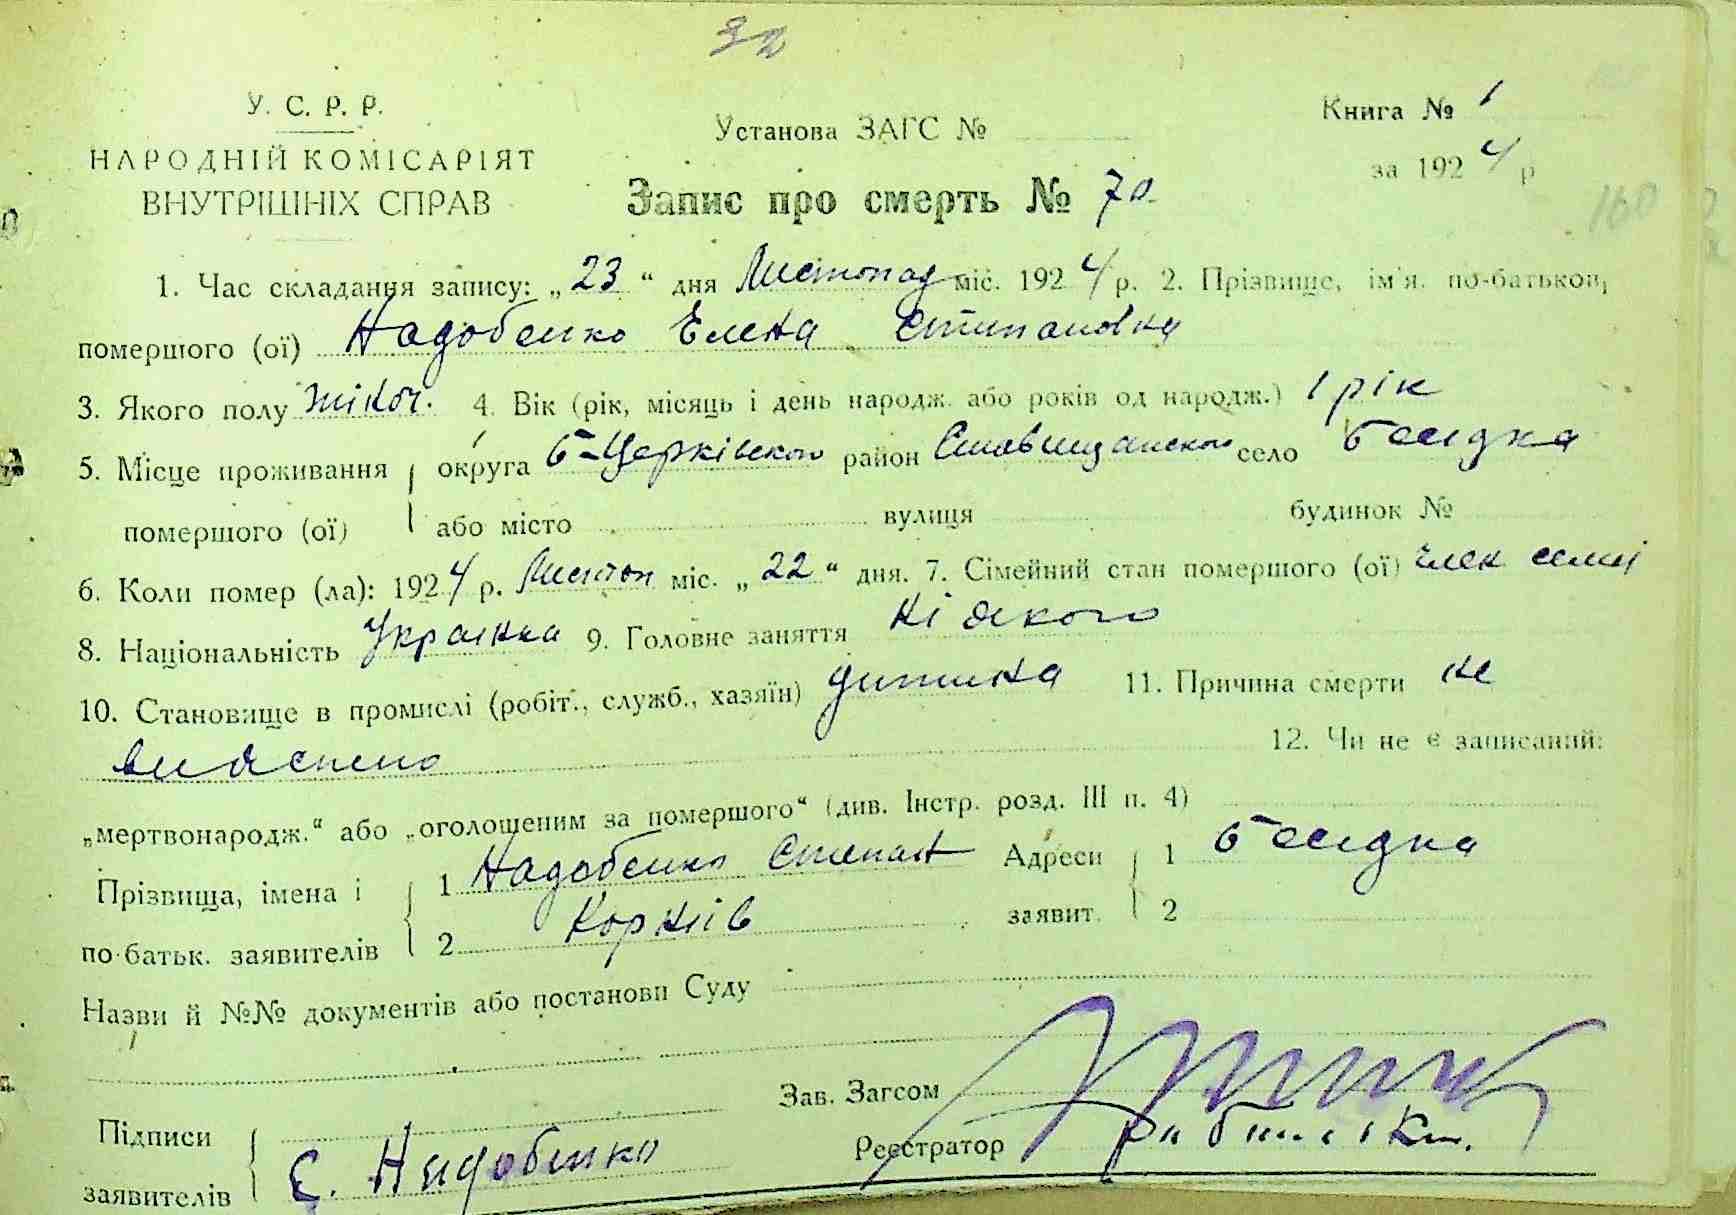 32
У. С. Р. Р.
НАРОДНІЙ КОМІСАРІЯТ
ВНУТРІШНІХ СПРАВ
Установа ЗАГС №
Книга № 1
за 1924 р
160
Запис про смерть № 70.
1. Час складання запису: „23“ дня Листопад міс. 1924 р. 2. Прізвище, ім'я, по-батькові,
помершого (ої) Надобенко Елена Стипановна
3. Якого полу жіноч. 4. Вік (рік, місяць і день народж. або років од народж.) 1 рік
5. Місце проживання округа Б-Церківского район Ставищанского село Бесидка
помершого (ої) або місто вулиця будинок №
6. Коли помер (ла): 1924 р. Листоп міс. „22“ дня. 7. Сімейний стан помершого (ої) член семні
8. Національність Украінка 9. Головне заняття ніякого
10. Становище в промислі (робіт., служб., хазяїн) дитина 11. Причина смерти не
вияснено 12. Чи не є записаний:
„мертвонародж.“ або „оголошеним за помершого“ (див. Інстр. розд. III п. 4)
Прізвища, імена і 1 Надобенко Степан Адреси 1 Бесидка
по-батьк. заявителів 2 Корніів заявит. 2
Назви й №№ документів або постанови Суду
Зав. Загсом
Підписи
Реєстратор
заявителів С. Надобенко